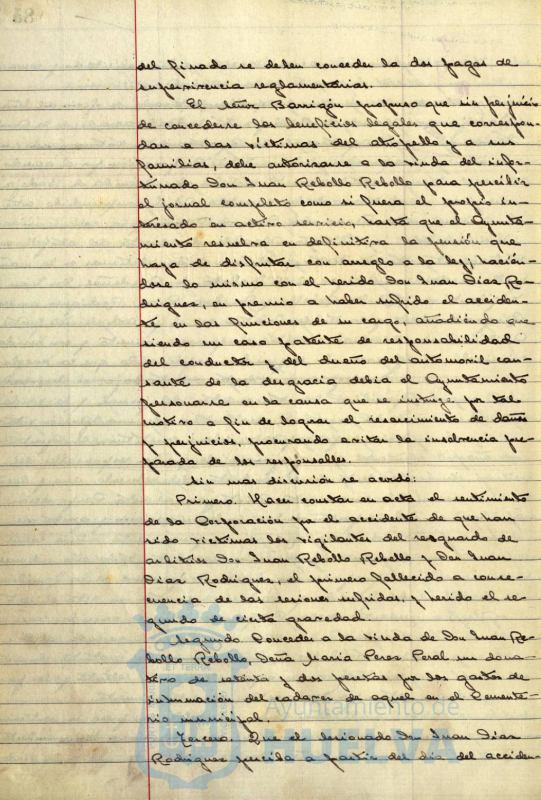 del finado se deben conceder la dos pagas de
supervivencia reglamentarias.
El Señor Barrigón propuso que sin perjuicio
de concederse los beneficios legales que correspon-
dan a las víctimas del atropello y a sus
familias, debe autorizarse a la viuda del infor-
tunado Don Juan Rebollo Rebollo para percibir
el jornal completo como si fuera el propio in-
teresado en activo servicio, hasta que el Ayunta-
miento resuelva en definitiva la pensión que
haya de disfrutar con arreglo a la ley; hacién-
dose lo mismo con el herido Don Juan Díaz Ro-
driguez, en premio a haber sufrido el acciden-
te en las funciones de su cargo, añadiendo que
siendo un caso patente de responsabilidad
del conductor y del dueño del automovil cau-
sante de la desgracia debía el Ayuntamiento
personarse en la causa que se instruye por tal
motivo a fin de lograr el resarcimiento de daños
y perjuicios, procurando evitar la insolvencia pre-
parada de los responsables.
Sin mas discusión se acordó:
Primero. Hacer constar en acta el sentimiento
de la Corporación por el accidente de que han
sido víctimas los vigilantes del resguardo de
arbitrios Don Juan Rebollo Rebollo y Don Juan
Diaz Rodriguez, el primero fallecido a conse-
cuencia de las lesiones sufridas, y herido el se-
gundo de cierta gravedad.
Segundo Conceder a la viuda de Don Juan Re-
bollo Rebollo, Doña Maria Perez Peral un dona-
tivo de setenta y dos pesetas por los gastos de
inhumación del cadaver de aquel en el Cemente-
rio municipal.
Tercero. Que el lesionado Don Juan Diaz
Rodriguez perciba a partir del dia del acciden-
Ayuntamiento de
HUELVA